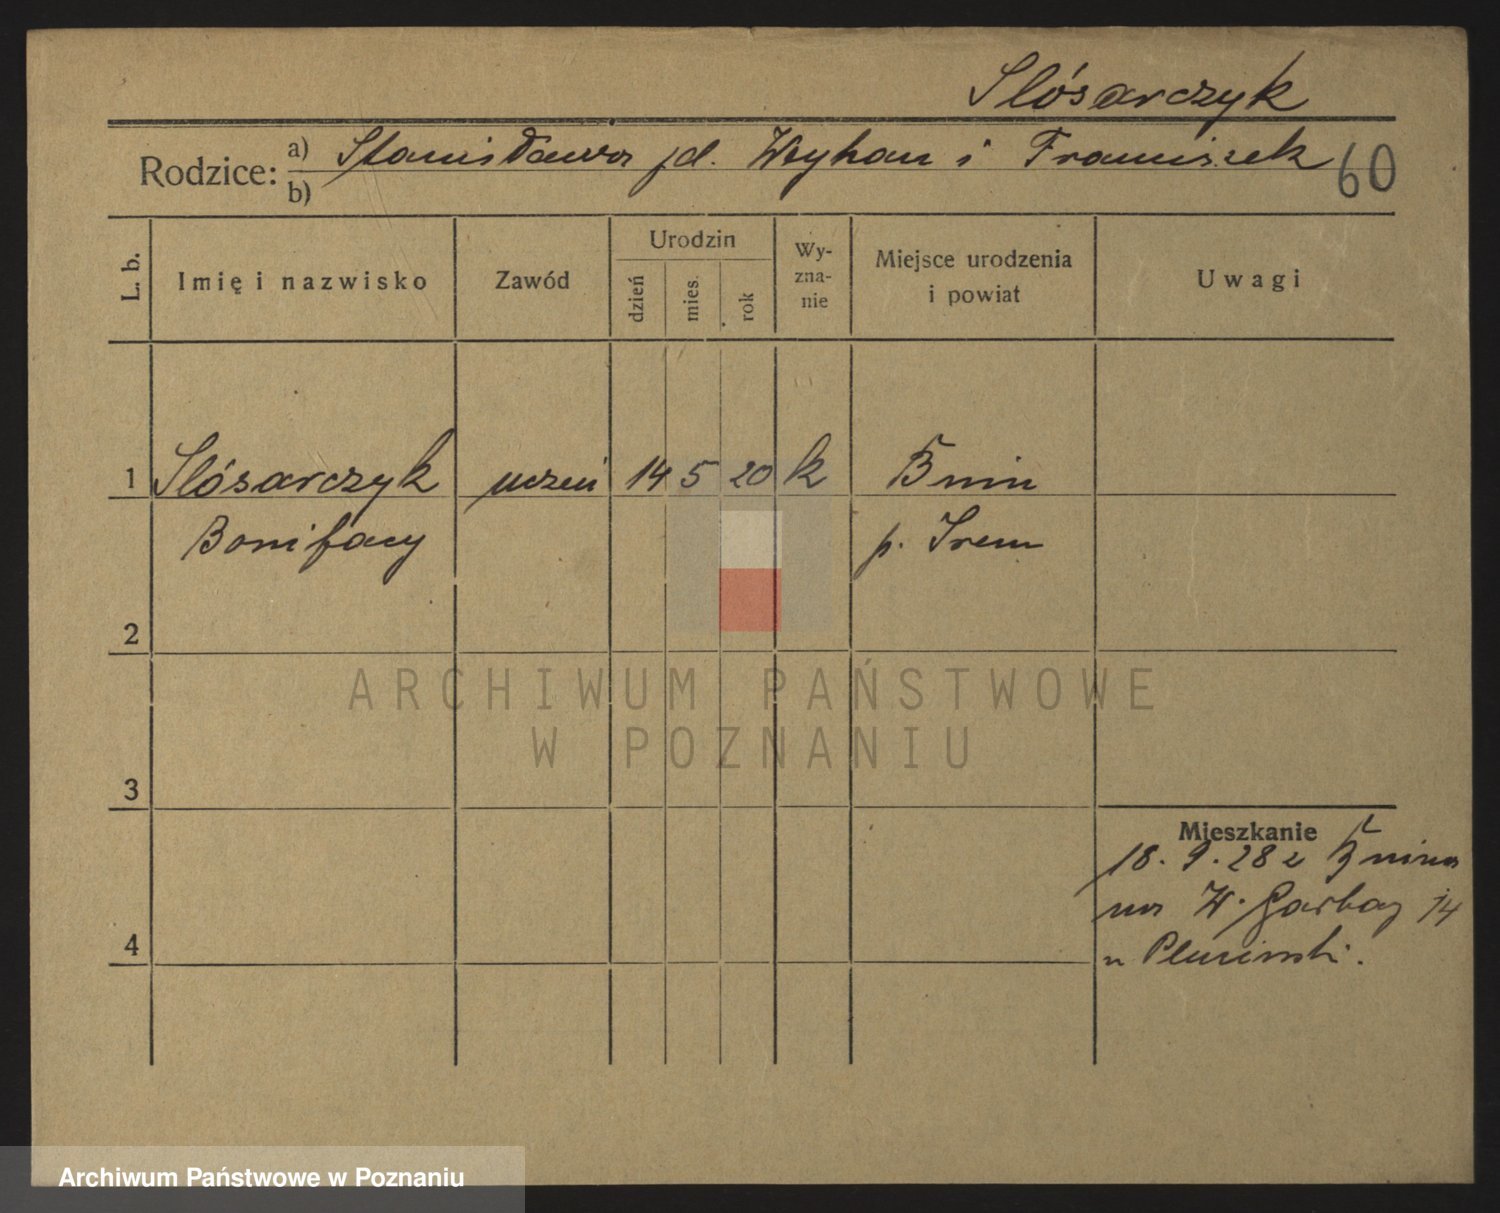 Slósarczyk
Rodzice: a) Stanisława jd. Weyhan i Franciszek
b)
60
L. b.
Imię i nazwisko
Zawód
Urodzin
dzień
mies.
rok
Wy-
zna-
nie
Miejsce urodzenia
i powiat
Uwagi
1 Slósarczyk uczeń 14 5 20 k Bnin
Bonifacy p. Śrem
2
ARCHIWUM PAŃSTWOWE
W POZNANIU
3
Mieszkanie
18. 9. 28 z Bnina
na W. Garbary 14
4
u
Archiwum Państwowe w Poznaniu